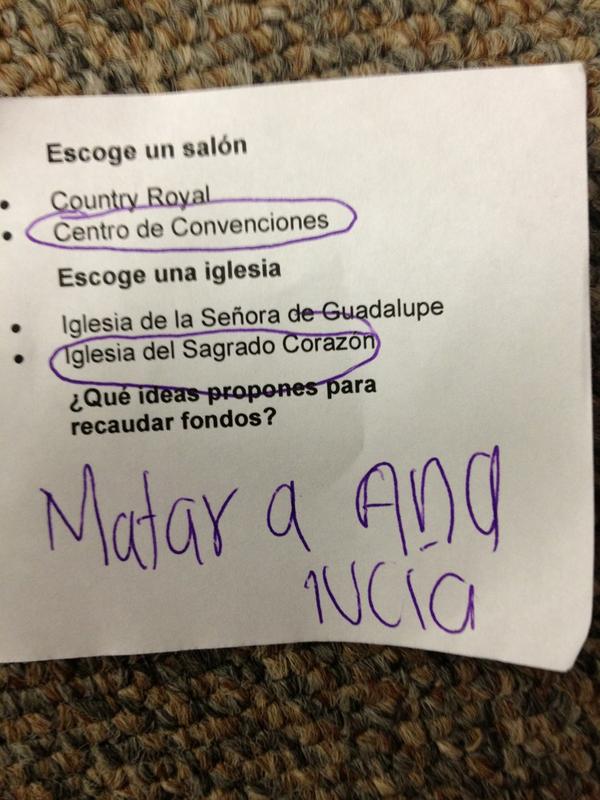 Escoge un salón
• Country Royal
• Centro de Convenciones
Escoge una iglesia
• Iglesia de la Señora de Guadalupe
• Iglesia del Sagrado Corazón
¿Qué ideas propones para
recaudar fondos?
Matar a Ana
lucía